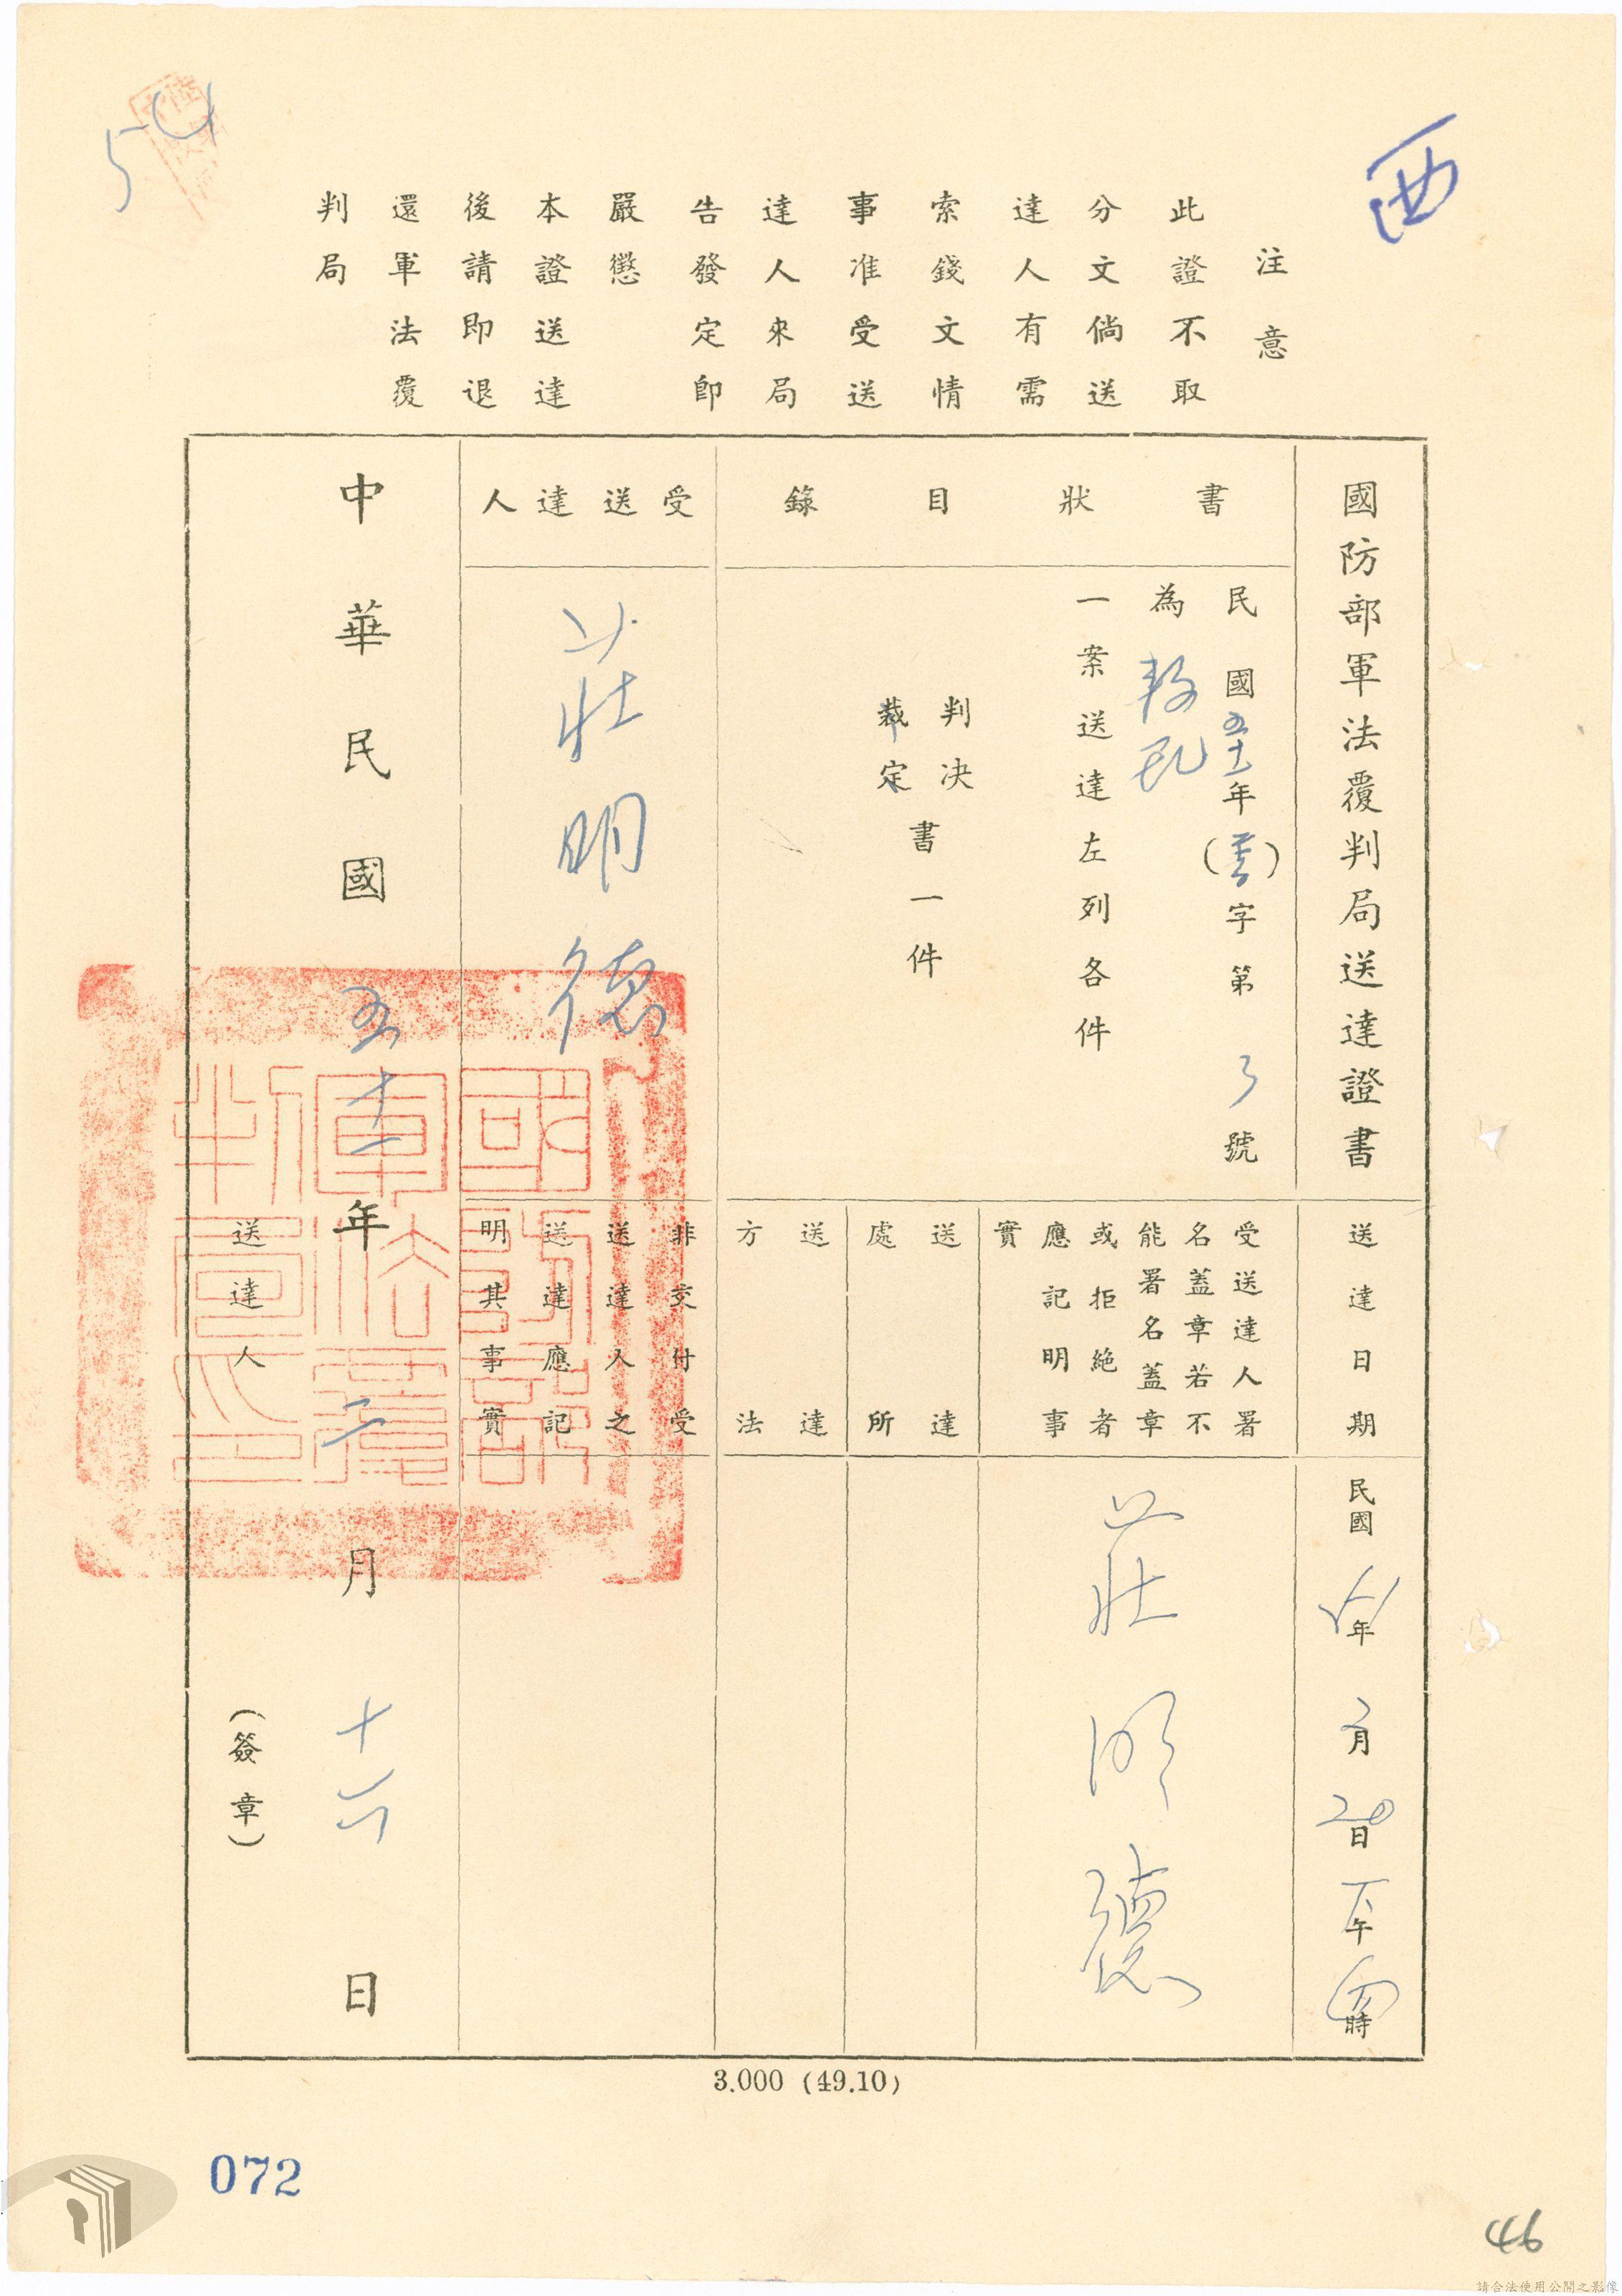 西
54
注意
此證不取
分文倘送
達人有需
索錢文情
事准受送
達人來局
告發定卽
嚴懲
本證送達
後請即退
還軍法覆
判局
國防部軍法覆判局送達證書
書狀目錄
民國五十一年(普)字第3號
為叛亂
一案送達左列各件
判決
裁定
書一件
受送達人
莊明德
送達日期
民國51年2月20日下午四時
受送達人署
名蓋章若不
能署名蓋章
或拒絕者
應記明事
實
莊明德
送達
處所
送達
方法
非交付受
送達人之
送達應記
明其事實
中華民國五十一年二月十六日
送達人
(簽章)
國防部軍法覆判局印
3.000 (49.10)
072
46
請合法使用公開之影像